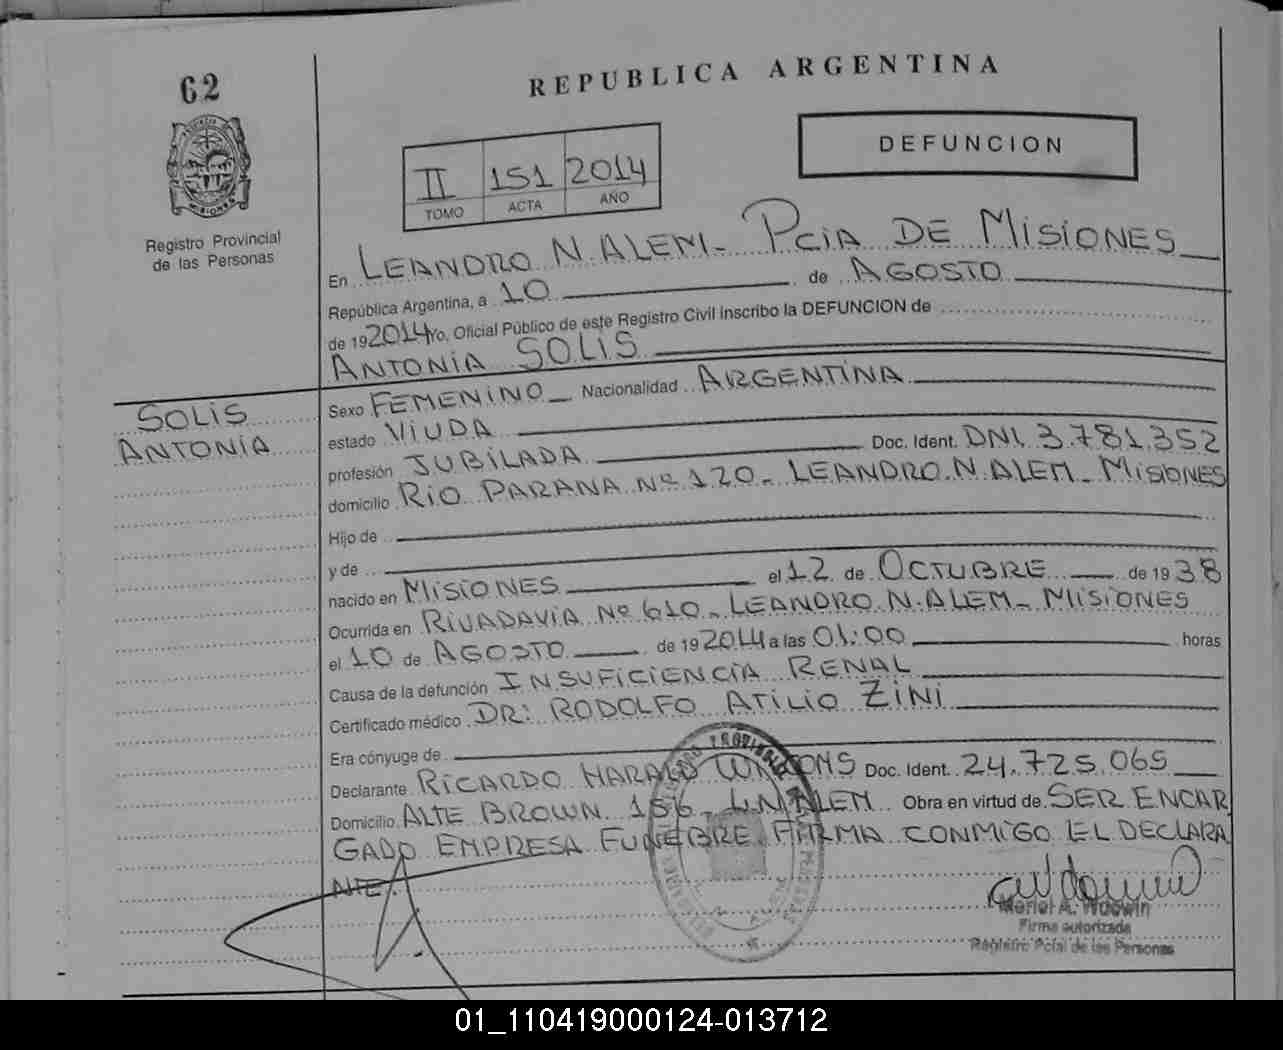 62
REPUBLICA ARGENTINA
DEFUNCION
II 151 2014
TOMO ACTA AÑO
Registro Provincial
de las Personas
En LEANDRO N. ALEM - PCIA DE MISIONES
República Argentina, a 10 de AGOSTO
de 192014 Yo, Oficial Público de este Registro Civil inscribo la DEFUNCION de
ANTONIA SOLIS
SOLIS
ANTONIA
Sexo FEMENINO Nacionalidad ARGENTINA
estado VIUDA
profesión JUBILADA Doc. Ident. DNI. 3.781.352
domicilio RIO PARANA Nº 120 - LEANDRO. N. ALEM - MISIONES
Hijo de
y de
nacido en MISIONES el 12 de OCTUBRE de 1938
Ocurrida en RIVADAVIA Nº 610 - LEANDRO. N. ALEM - MISIONES
el 10 de AGOSTO de 192014 a las 01:00 horas
Causa de la defunción INSUFICIENCIA RENAL
Certificado médico DR: RODOLFO ATILIO ZINI
Era cónyuge de
Declarante RICARDO HARALD Doc. Ident. 24.725.065
Domicilio ALTE BROWN 156 - L.N. ALEM Obra en virtud de SER ENCAR
GADO EMPRESA FUNEBRE FIRMA CONMIGO EL DECLARA
NTE.
Mariel A.
Firma autorizada
Registro Pcial de las Personas
01_110419000124-013712